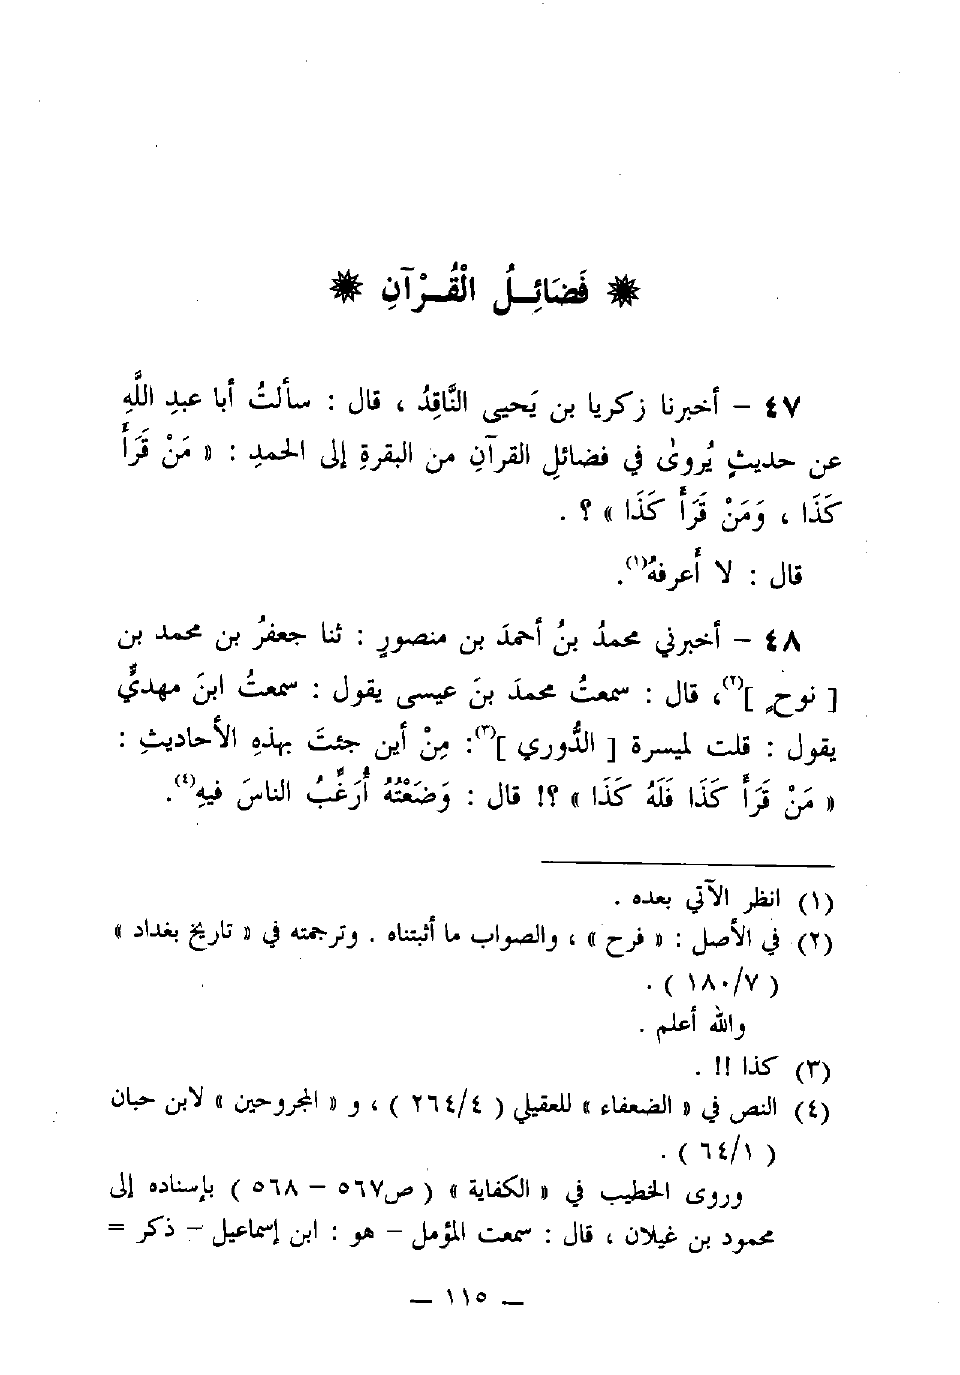 فَضَائِلُ الْقُرْآنِ
٤٧ – أخبرنا زكريا بن يَحيى النَّاقِدُ ، قال : سألتُ أبا عبدِ اللَّهِ
عن حديثٍ يُروىٰ في فضائلِ القرآنِ من البقرةِ إلى الحمدِ : « مَنْ قَرَأَ
كَذَا ، وَمَنْ قَرَأَ كَذَا » ؟ .
قال : لا أَعرفهُ(١).
٤٨ – أخبرني محمدُ بنُ أحمدَ بن منصورٍ : ثنا جعفرُ بن محمد بن
[ نوحٍ ](٢)، قال : سمعتُ محمدَ بنَ عيسى يقول : سمعتُ ابنَ مهديٍّ
يقول : قلت لميسرة [ الدُّوري ](٣): مِنْ أين جئتَ بهذهِ الأحاديثِ :
« مَنْ قَرَأَ كَذَا فَلَهُ كَذَا » ؟! قال : وَضَعْتُهُ أُرَغِّبُ الناسَ فيهِ(٤).
(١) انظر الآتي بعده .
(٢) في الأصل : « فرح » ، والصواب ما أثبتناه . وترجمته في « تاريخ بغداد »
( ١٨٠/٧ ) .
والله أعلم .
(٣) كذا !! .
(٤) النص في « الضعفاء » للعقيلي ( ٢٦٤/٤ ) ، و « المجروحين » لابن حبان
( ٦٤/١ ) .
وروى الخطيب في « الكفاية » ( ص٥٦٧ – ٥٦٨ ) بإسناده إلى
محمود بن غيلان ، قال : سمعت المؤمل – هو : ابن إسماعيل – ذكر =
– ١١٥ –